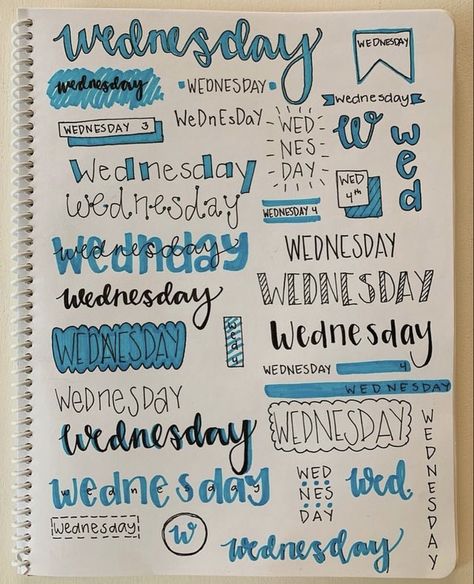 wednesday
WEDNESDAY
wednesday
WEDNESDAY
Wednesday
WEDNESDAY 3
WeDnEsDAY
WED
NES
DAY
w
w
e
d
Wednesday
WED
4th
Wednesday
WEDNESDAY 4
wednday
wednesday
WEDNESDAY
wednesday
WEDNESDAY
WEDNESDAY
Wednesday
WEDNESDAY 4
WEDNESDAY
weDnesDay
WEDNESDAY
wednesday
W
E
D
N
E
S
D
A
Y
wednesday
wednesday
WED
NES
DAY
wed
Wednesday
w
wednesday